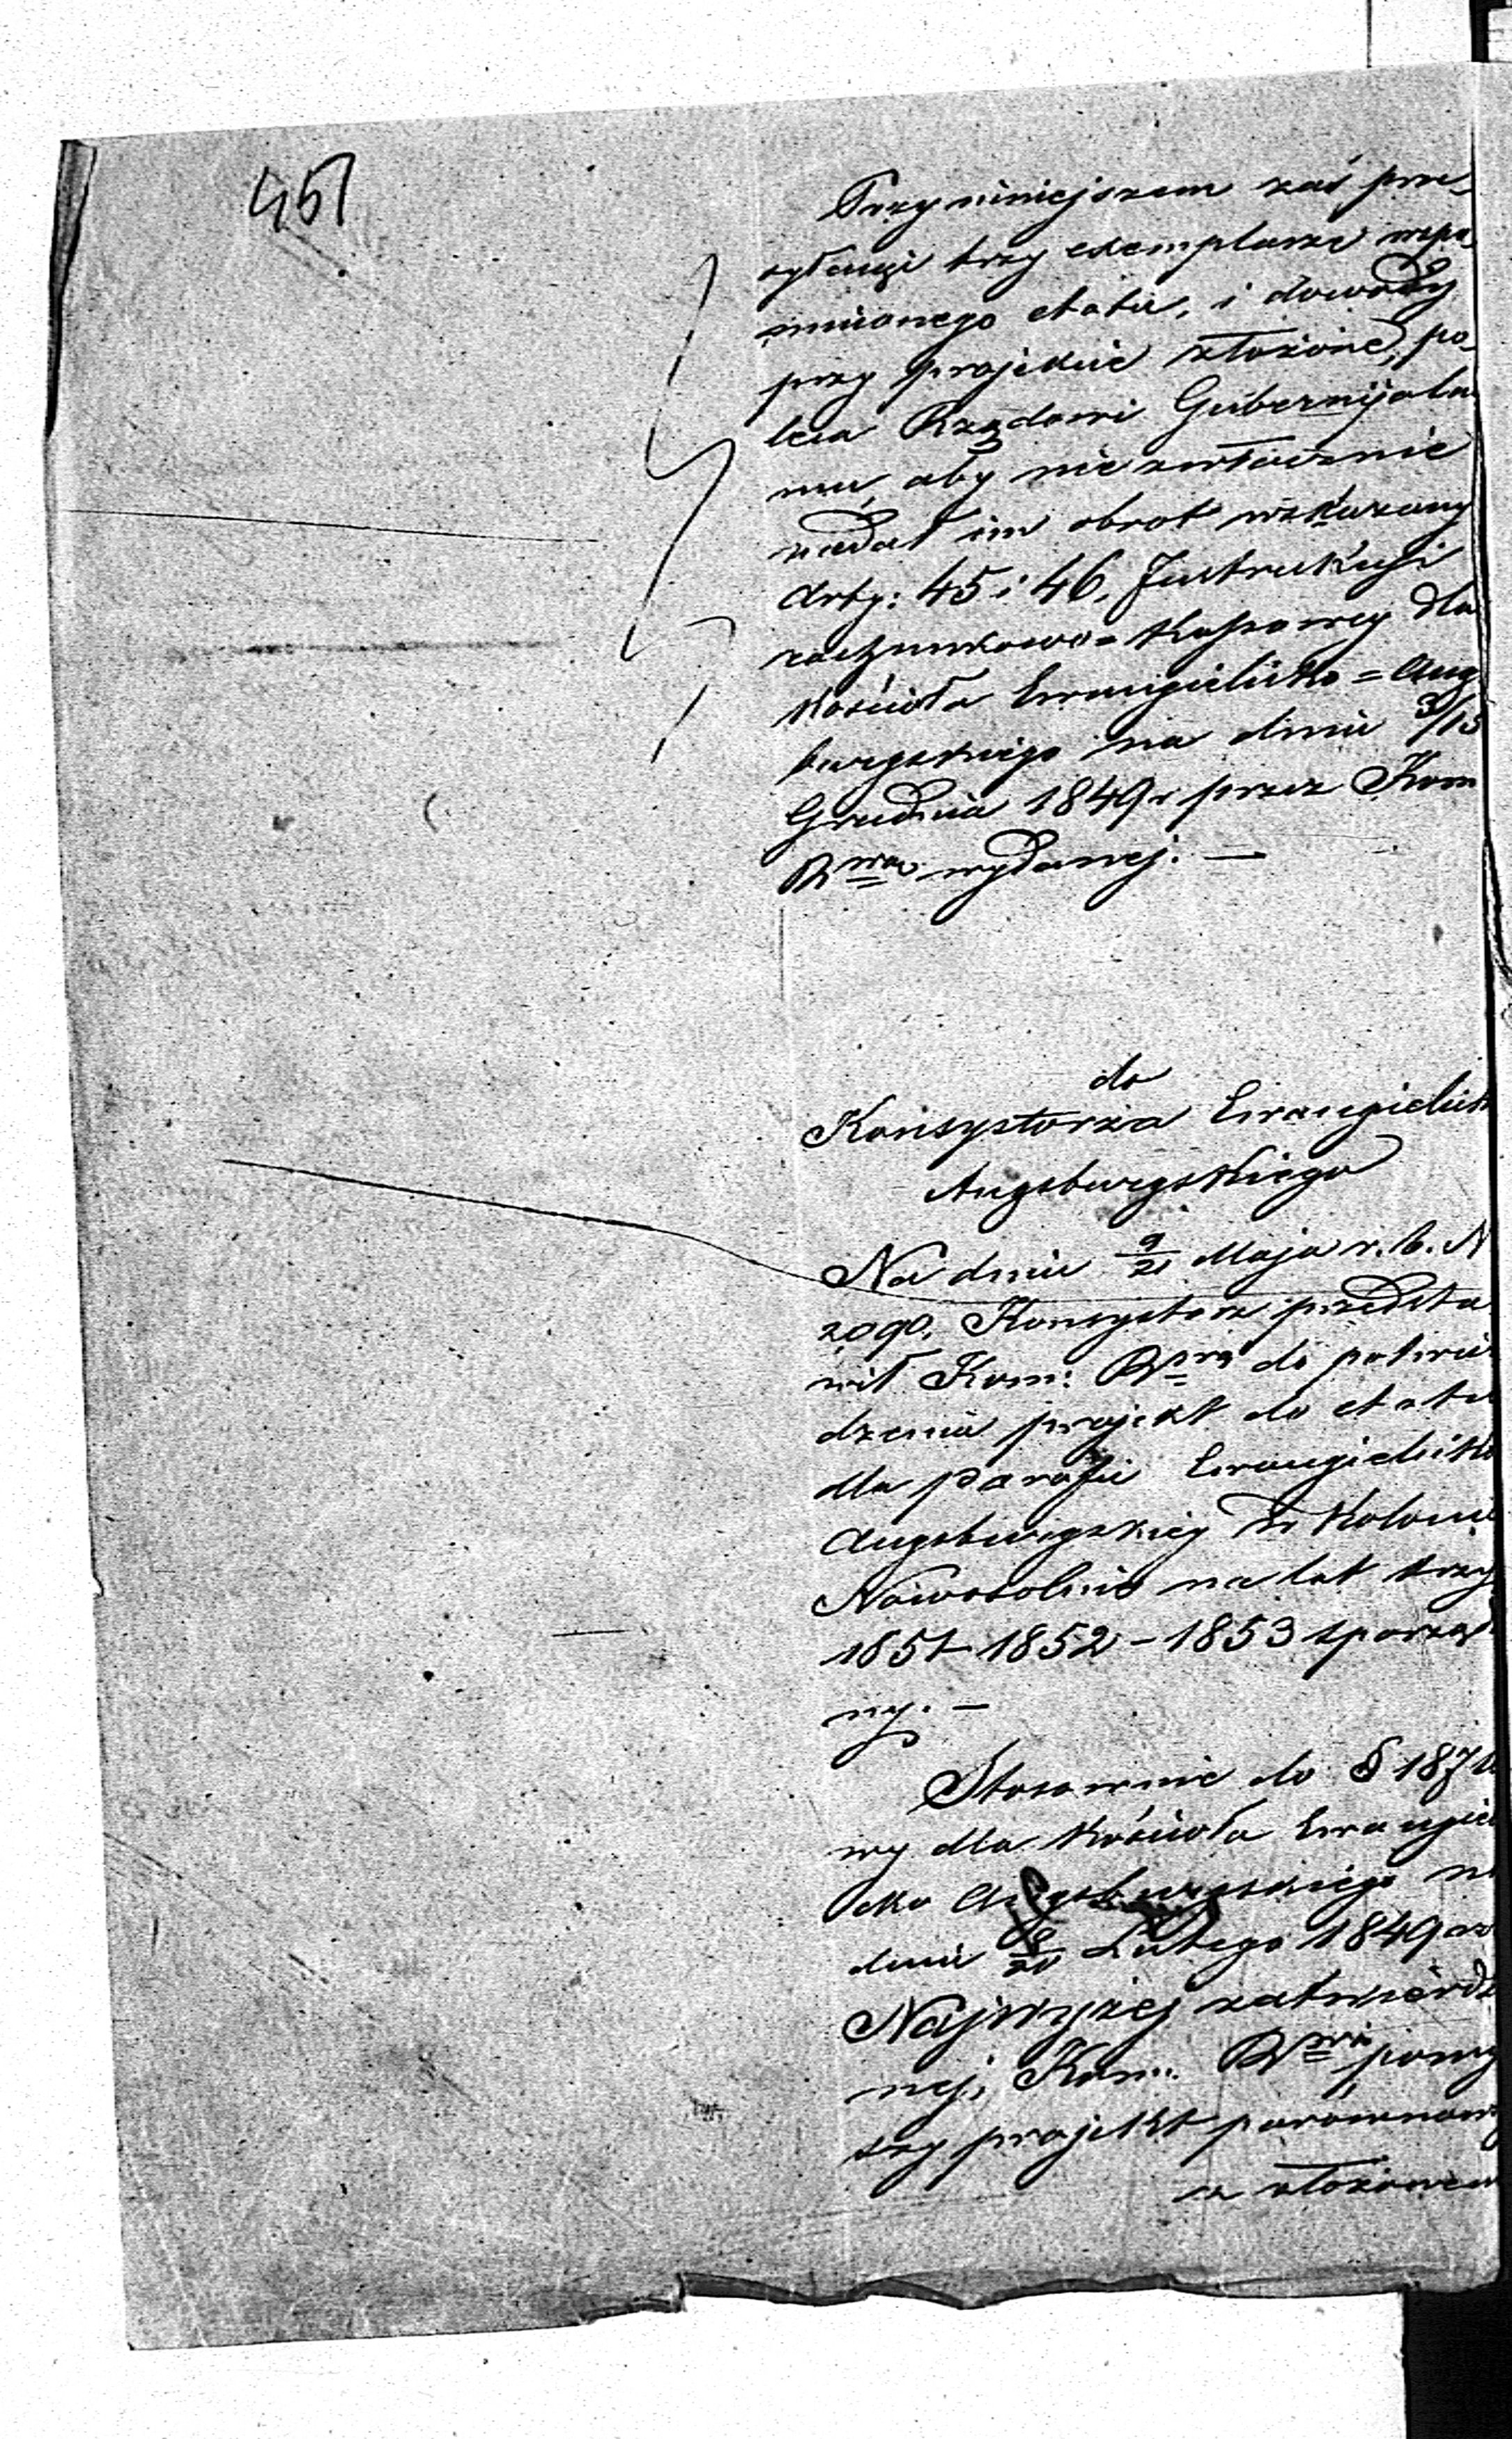 451
Przy niniejszem zaś prze-
syłając trzy exemplarze wspo
mnionego etatu, i dowody
przy projekcie złożone, po-
leca Rządowi Gubernijalne
mu, aby niezwłocznie
nadał im obrot wskazany
Arty: 45 i 46, Instrukcyi
rachunkowo=Kassowey dla
Kościoła Ewangielicko=Aug
burgskiego na dniu 3/15
Grudnia 1849 r przez Kom
Rwa wydanej. —
do
Konsystorza Ewangielick
Augsburgskiego
Na dniu 9/21 Maja r. b. N
2090, Konsystorz przedsta
wił Kom: Rwą do potwier
dzenia projekt do etatu
dla parafii Ewangielicko
Augsburgskiej w Kolonii
Nowosolnie na lat trzy
1851-1852-1853 sporząd
ny. —
Stosownie do § 187 U
wy dla Kościoła Ewangiel
cko Augsburgskiego na
dniu 8/20 Lutego 1849 ro
Najwyżej zatwierdzo
nej, Kom: Rwa powy
szy projekt porównaw
z złożonem